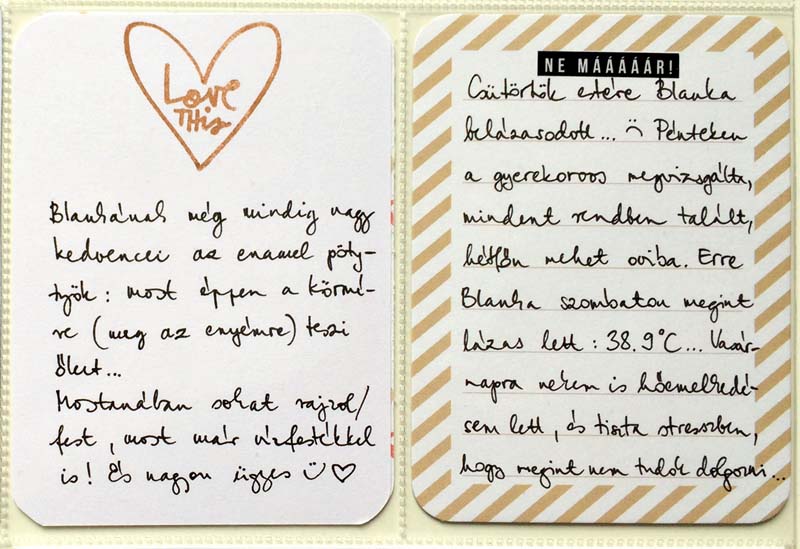 Love
THis
Blankának még mindig nagy
kedvencei az enamel pöty-
työk: most éppen a körmé-
re (meg az enyémre) teszi
őket...
Mostanában sokat rajzol/
fest, most már vízfestékkel
is! És nagyon ügyes :) ♡
NE MÁÁÁÁÁR!
Csütörtök estére Blanka
belázasodott... :( Pénteken
a gyerekorvos megvizsgálta,
mindent rendben talált,
hétfőn mehet oviba. Erre
Blanka szombaton megint
lázas lett: 38.9°C... Vasár-
napra nekem is hőemelkedé-
sem lett, és tiszta stresszben,
hogy megint nem tudok dolgozni...